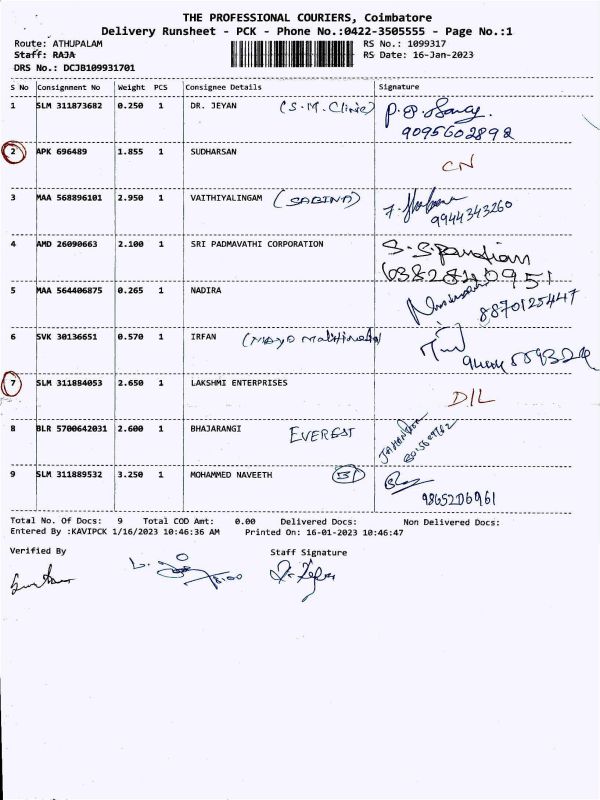 THE PROFESSIONAL COURIERS, Coimbatore
Delivery Runsheet - PCK - Phone No.:0422-3505555 - Page No.:1
Route: ATHUPALAM RS No.: 1099317
Staff: RAJA RS Date: 16-Jan-2023
DRS No.: DCJB109931701
S No Consignment No Weight PCS Consignee Details Signature
1 SLM 311873682 0.250 1 DR. JEYAN (S.M. Clinic)
9095602892
2 APK 696489 1.855 1 SUDHARSAN CN
3 MAA 568896101 2.950 1 VAITHIYALINGAM (SABINA)
9944343260
4 AMD 26090663 2.100 1 SRI PADMAVATHI CORPORATION S.S.Pandian
6382840951
5 MAA 564406875 0.265 1 NADIRA
8870125447
6 SVK 30136651 0.570 1 IRFAN
7 SLM 311884053 2.650 1 LAKSHMI ENTERPRISES D/L
8 BLR 5700642031 2.600 1 BHAJARANGI EVEREST
9 SLM 311889532 3.250 1 MOHAMMED NAVEETH
9865206961
Total No. Of Docs: 9 Total COD Amt: 0.00 Delivered Docs: Non Delivered Docs:
Entered By :KAVIPCK 1/16/2023 10:46:36 AM Printed On: 16-01-2023 10:46:47
Verified By Staff Signature